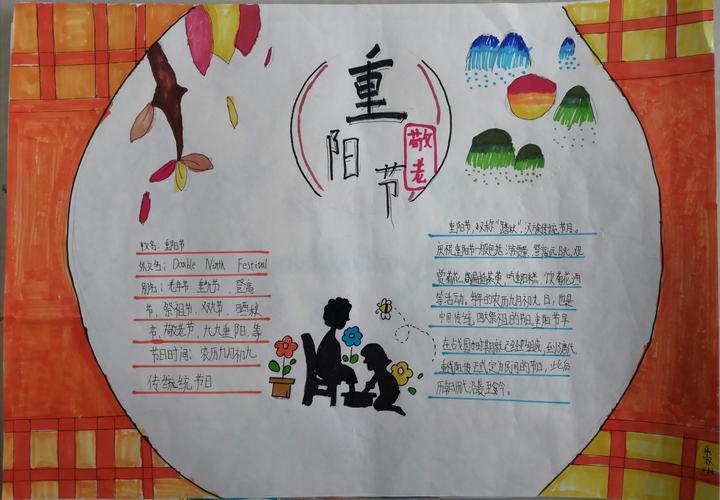 重阳节
敬老
中文名：重阳节
外文名：Double Ninth Festival
别名：老年节 重九节 登高
节，祭祖节，双九节，晒秋
节，敬老节，九九重阳，等
节日时间：农历九月初九
传统节日
重阳节，又称“踏秋”，汉族传统节日。
庆祝重阳节一般包括游赏景、登高远眺、观
赏菊花、遍插茱萸、吃重阳糕、饮菊花酒
等活动，每年的农历九月初九日，也是
中国传统四大祭祖的节日，重阳节早
在战国时期就已经形成，到了唐代
重阳被正式定为民间的节日，此后
历朝历代沿袭至今。